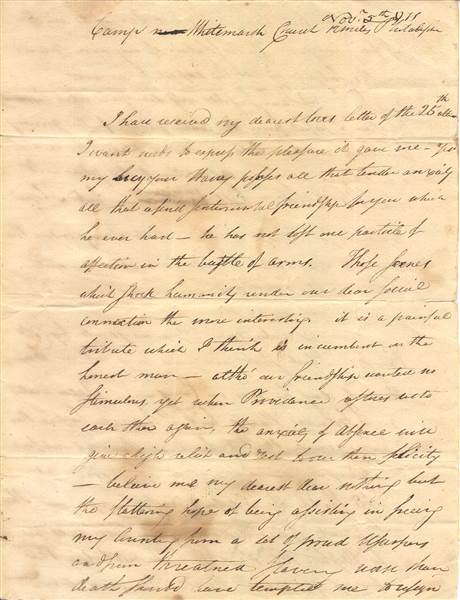 Camp Whitemarsh Church 12 miles Philadelphia
Nov. 5th 1777
I have received my dearest loves letter of the 25th
I want words to express the pleasure it gave me
my all that tender anxiety
all that sentimental friendship for you which
he ever had — he has not lost one particle of
affection in the bustle of arms. Those scenes
which shock humanity render our dear social
connection the more interesting. it is a painful
tribute which I think is incumbent on the
honest man — altho' our friendship wanted no
stimulous, yet when Providence restores us to
each other again, the anxiety of absence will
give a high relish and zest to our then felicity
— believe me my dearest dear nothing but
the flattering hope of being assisting in freeing
my Country from a set of proud Usurpers
and from threatned slavery worse than
death should have tempted me to resign